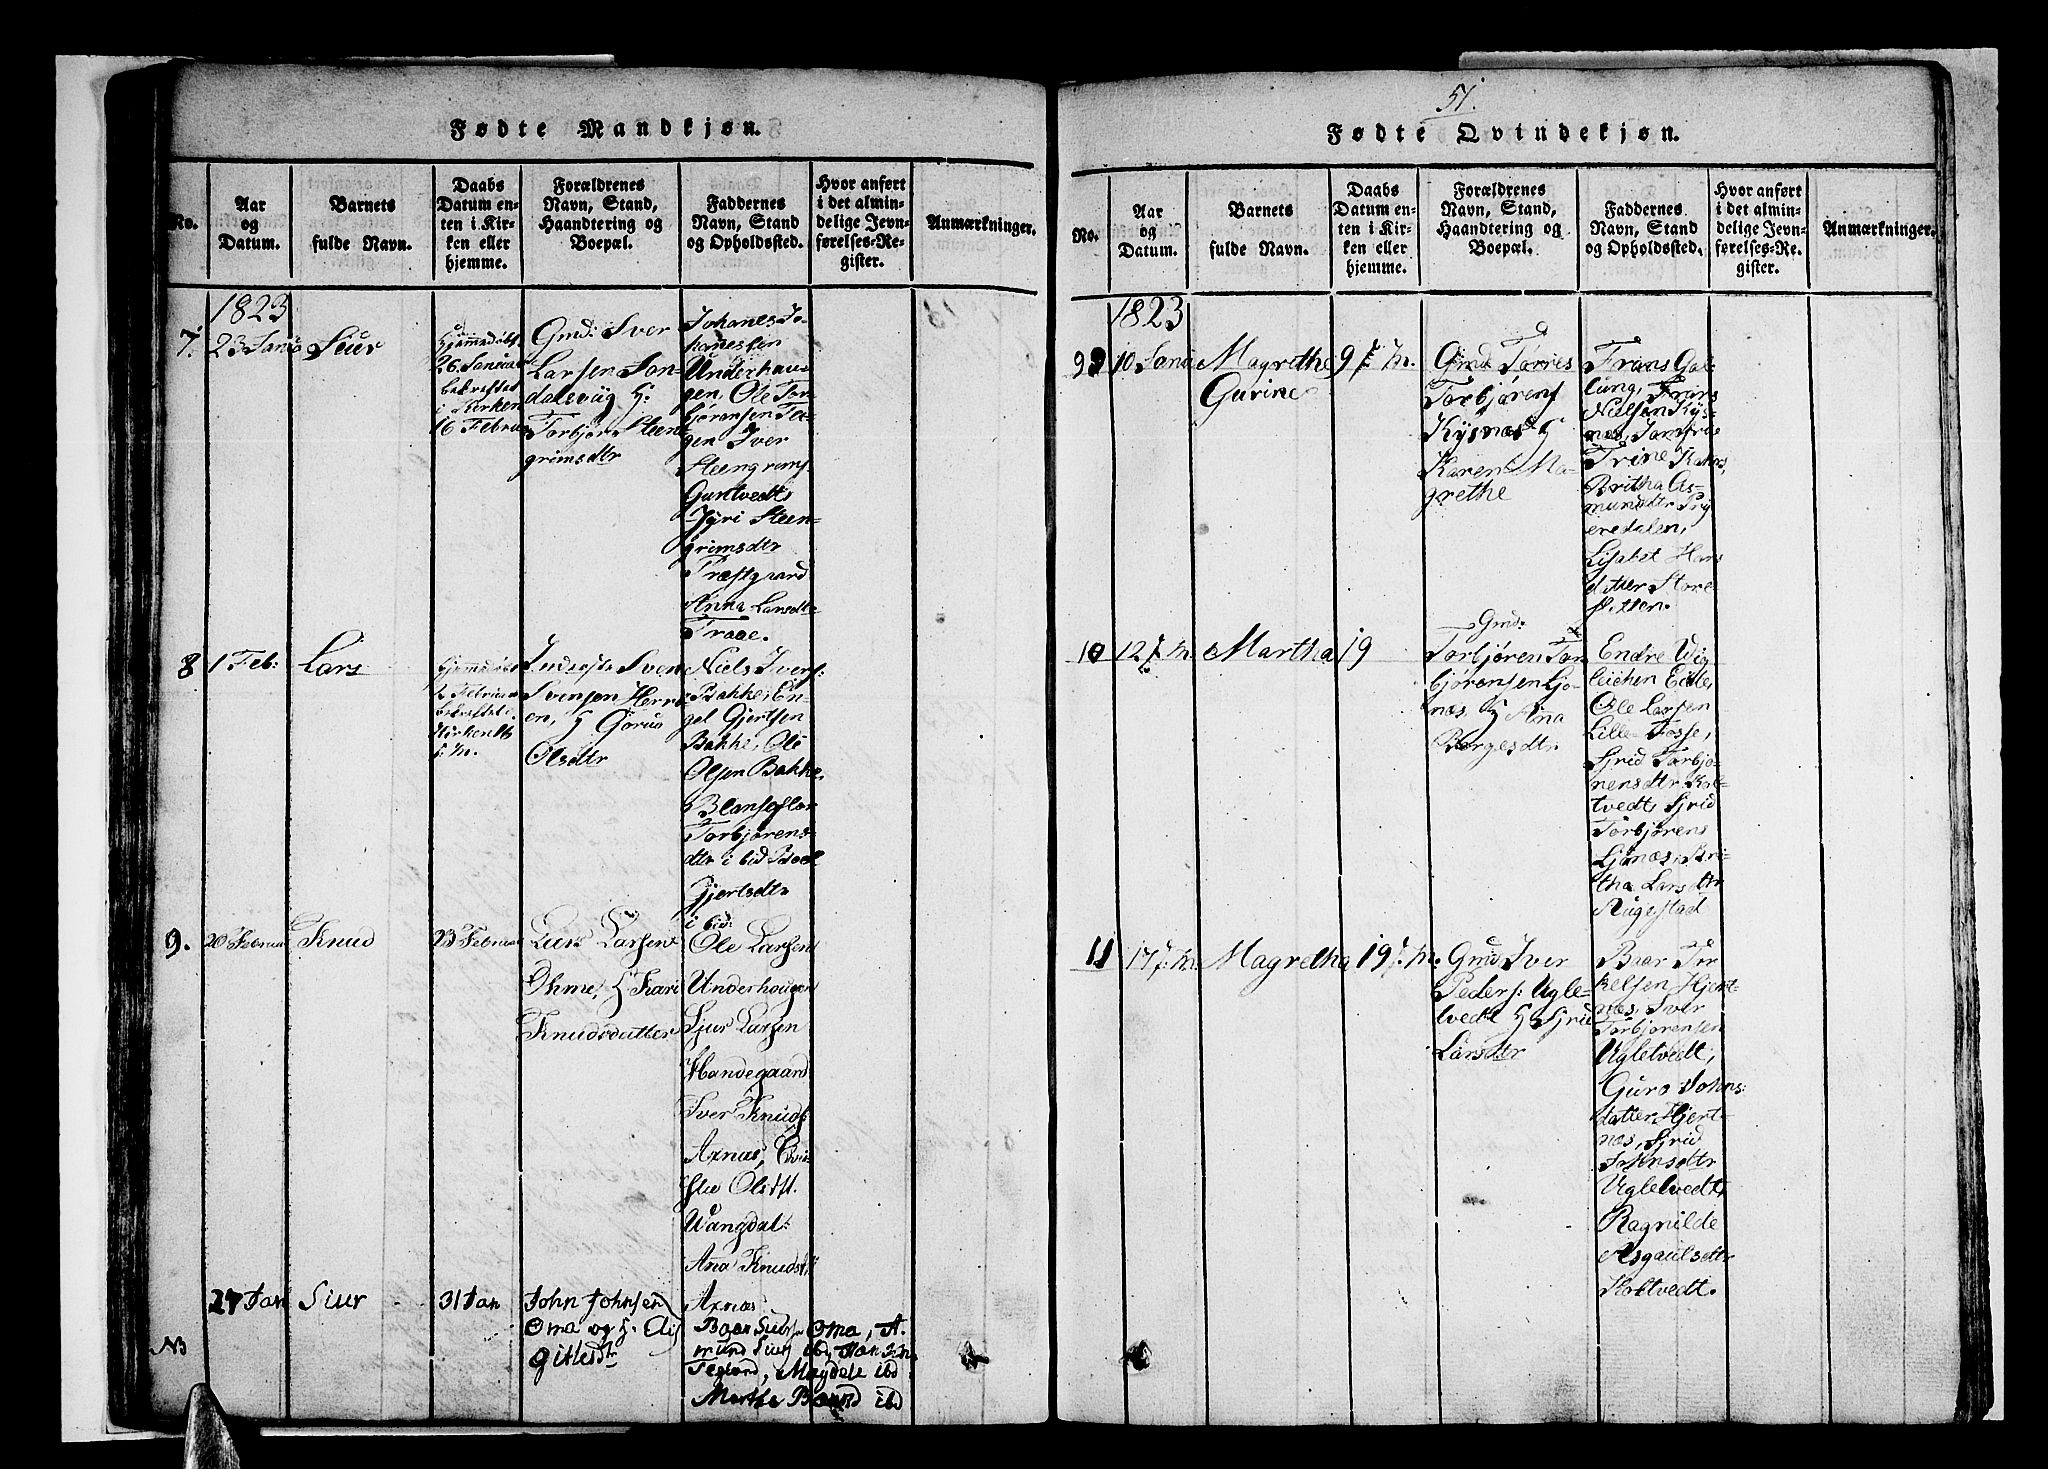 Fødte Mandkjøn.
No.
Aar
og
Datum.
Barnets
fulde Navn.
Daabs
Datum en-
ten i Kir-
ken eller
hjemme.
Forældrenes
Navn, Stand,
Haandtering og
Boepæl.
Faddernes
Navn, Stand
og Opholdssted.
Hvor anført
i det almin-
delige Jevn-
førelses-Re-
gister.
Anmærkninger.
1823
7.
23 Janu
Siur
Hjemmedøbt
26 Januar
bekræftet
i Kirken
16 Februar
Gmd: Iver
Larsen
H:
Torbjør Steen
grimsdtr
Johanes Jo-
hanessen
Underhau-
gen, Ole Tor-
bjørensen
Iver
Steengrims.
Guntvedt
Steen-
grimsdtr
Præstgaard
Anna Larsdtr
Traae.
8
1 Feb:
Lars
Hjemmedøbt
2 Februar
bekræftet i
Kirken
Inderste Sven
Svensen Herre
en, H Gøruu
Olsdtr
Niels Ivers:
Bakke, En-
gel Gjertsen
Bakke, Ole
Olsen Bakke,
Blanseflor
Torbjørens-
dtr i bid
Gjertsdtr
i bid:
9.
20 Februar
Knud
23 Februar
Larsen
Ohme, H Kari
Knudsdatter
Ole Larsen
Underhaugen
Sjur Larsen
Mandegaard
Iver Knuds
Axnæs,
Olsdt.
Wangdal
Ana Knudsdt
Axnæs
NB
27 Jan
Siur
31 Jan
John Johnsen
Oma og H.
Gitlesdtr
Baar Siurs Oma, A-
mund Siurs ibd, Jan
Tegland, Magdele ibd
Marthe Baard ibd
51.
Fødte Qvindekjøn.
No.
Aar
og
Datum.
Barnets
fulde Navn.
Daabs
Datum en-
ten i Kir-
ken eller
hjemme.
Forældrenes
Navn, Stand,
Haandtering og
Boepæl.
Faddernes
Navn, Stand
og Opholdssted.
Hvor anført
i det almin-
delige Jevn-
førelses-Re-
gister.
Anmærkninger.
1823
9
10 Janu
Magrethe
Gurine
Gmd Tørres
Torbjørens
Kysnæs H
Karen Ma-
grethe
Frans Gal-
tung,
Nielsen Kys-
næs, Jomfrue
Trine
Britha As-
mundsdtr
Lisabet Hans
datter Store
10
12
Martha
19
Gmd:
Torbjøren Tor
bjørensen Ljo-
næs H Ana
Børgesdtr
Endre Vig
leichen Eide,
Ole Larsen
Lille Fosse,
Sjrid Torbjø-
rensdtr Kol-
tvedt, Sjrid
Torbjørens
Ljonæs, Bri-
tha Larsdtr
Augestad
11
17
Magretha
19
Gmd Iver
Peders: Ugle-
tvedt H Sjrid
Larsdtr
Baar Tor
kelsen Hjert-
næs, Iver
Torbjørensen
Ugletvedt,
Guro Johns:
datter Hjert-
næs, Sjrid
Ugletvedt,
Ragnilde
Asgautsdtr
Koltvedt.